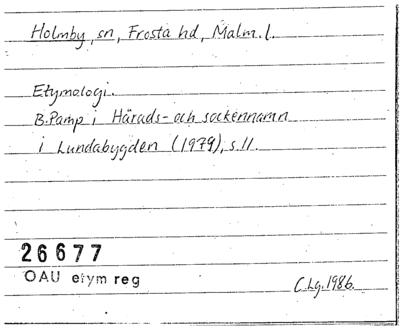 Holmby, sn, Frosta hd, Malm. l.
Etymologi.
B. Pamp i Härads- och sockennamn
i Lundabygden (1979), s. 11.
26677
OAU etym reg
C.Lg. 1986.